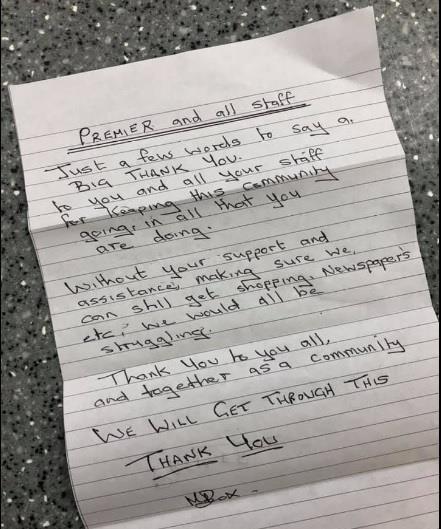 PREMIER and all staff
Just a few words to say a.
BIG THANK YOU.
to you and all your staff
for keeping this community
going, in all that you
are doing.
Without your support and
assistance, making sure we,
can still get shopping, Newspapers
etc; we would all be
struggling.
Thank You to you all,
and together as a community
WE WILL GET THROUGH THIS
THANK YOU